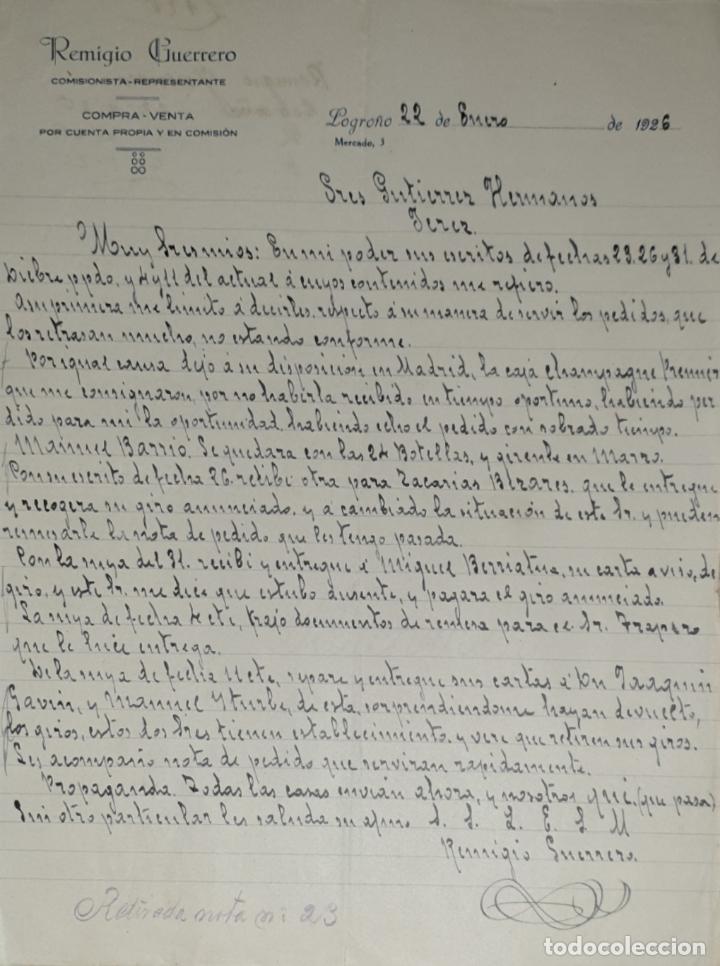 Remigio Guerrero
COMISIONISTA-REPRESENTANTE
COMPRA - VENTA
POR CUENTA PROPIA Y EN COMISIÓN
Logroño 22 de Enero de 1926
Mercado, 3
Sres Gutierrez Hermanos
Jerez.
Muy Sres mios: En mi poder sus escritos de fechas 23. 26 y 31. de
Dicbre ppdo, y 4 y 11 del actual á cuyos contenidos me refiero.
A su primera me limito á decirles, respecto á su manera de servir los pedidos, que
los retrasan mucho, no estando conforme.
Por igual causa dejo á su disposición en Madrid, la caja Champagne Premier
que me consignaron, por no haberla recibido en tiempo oportuno, habiendo per
dido para mi la oportunidad, habiendo echo el pedido con sobrado tiempo.
Manuel Barrio. Se quedara con las 24 Botellas, y girenle en Marzo.
Con su escrito de fecha 26. recibi otra para Zacarias Bezares. que le entregue
y recogera su giro anunciado, y á cambiado la situación de este Sr. y pueden
remesarle la nota de pedido que les tengo pasada.
Con la suya del 31. recibi y entregue á Miguel Berriatua, su carta aviso, de
giro, y este Sr. me dice que estubo ausente, y pagara el giro anunciado.
La suya de fecha 4 cte, trajo documentos de remesa para el Sr. Frapero
que le hice entrega.
De la suya de fecha 11 cte, separe y entregue sus cartas á Dn Joaquin
Gavin, y Manuel Yturbe, de esta, sorprendiendome hayan devuelto,
los giros, estos dos Sres tienen establecimiento. y vere que retiren sus giros.
Les acompaño nota de pedido que serviran rapidamente.
Propaganda. Todas las casas envian ahora, y nosotros qué. (que pasa)
Sin otro particular les saluda su afmo S. S. Q. E. S. M
Remigio Guerrero.
Retirada nota nº 23
todocoleccion